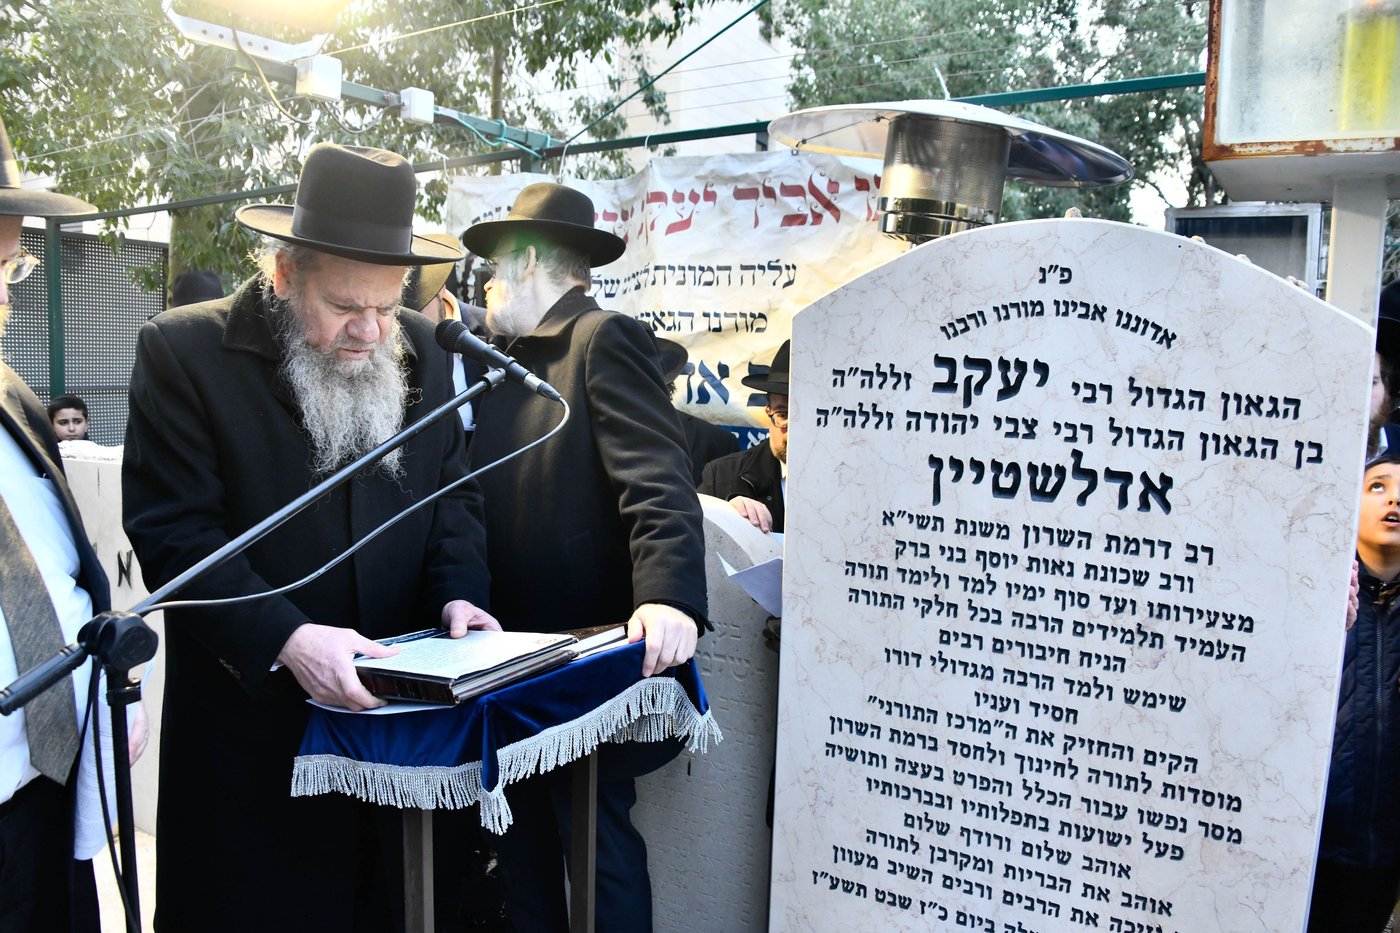 אביר יעקב
עליה המונית לציון של
מורנו הגאון
פ"נ
אדוננו אבינו מורנו ורבנו
הגאון הגדול רבי יעקב זללה"ה
בן הגאון הגדול רבי צבי יהודה זללה"ה
אדלשטיין
רב דרמת השרון משנת תשי"א
ורב שכונת נאות יוסף בני ברק
מצעירותו ועד סוף ימיו למד ולימד תורה
העמיד תלמידים הרבה בכל חלקי התורה
הניח חיבורים רבים
שימש ולמד הרבה מגדולי דורו
חסיד ועניו
הקים והחזיק את ה"מרכז התורני"
מוסדות לתורה לחינוך ולחסד ברמת השרון
מסר נפשו עבור הכלל והפרט בעצה ותושיה
פעל ישועות בתפלותיו ובברכותיו
אוהב שלום ורודף שלום
אוהב את הבריות ומקרבן לתורה
וזיכה את הרבים ורבים השיב מעוון
ביום כ"ז שבט תשע"ז